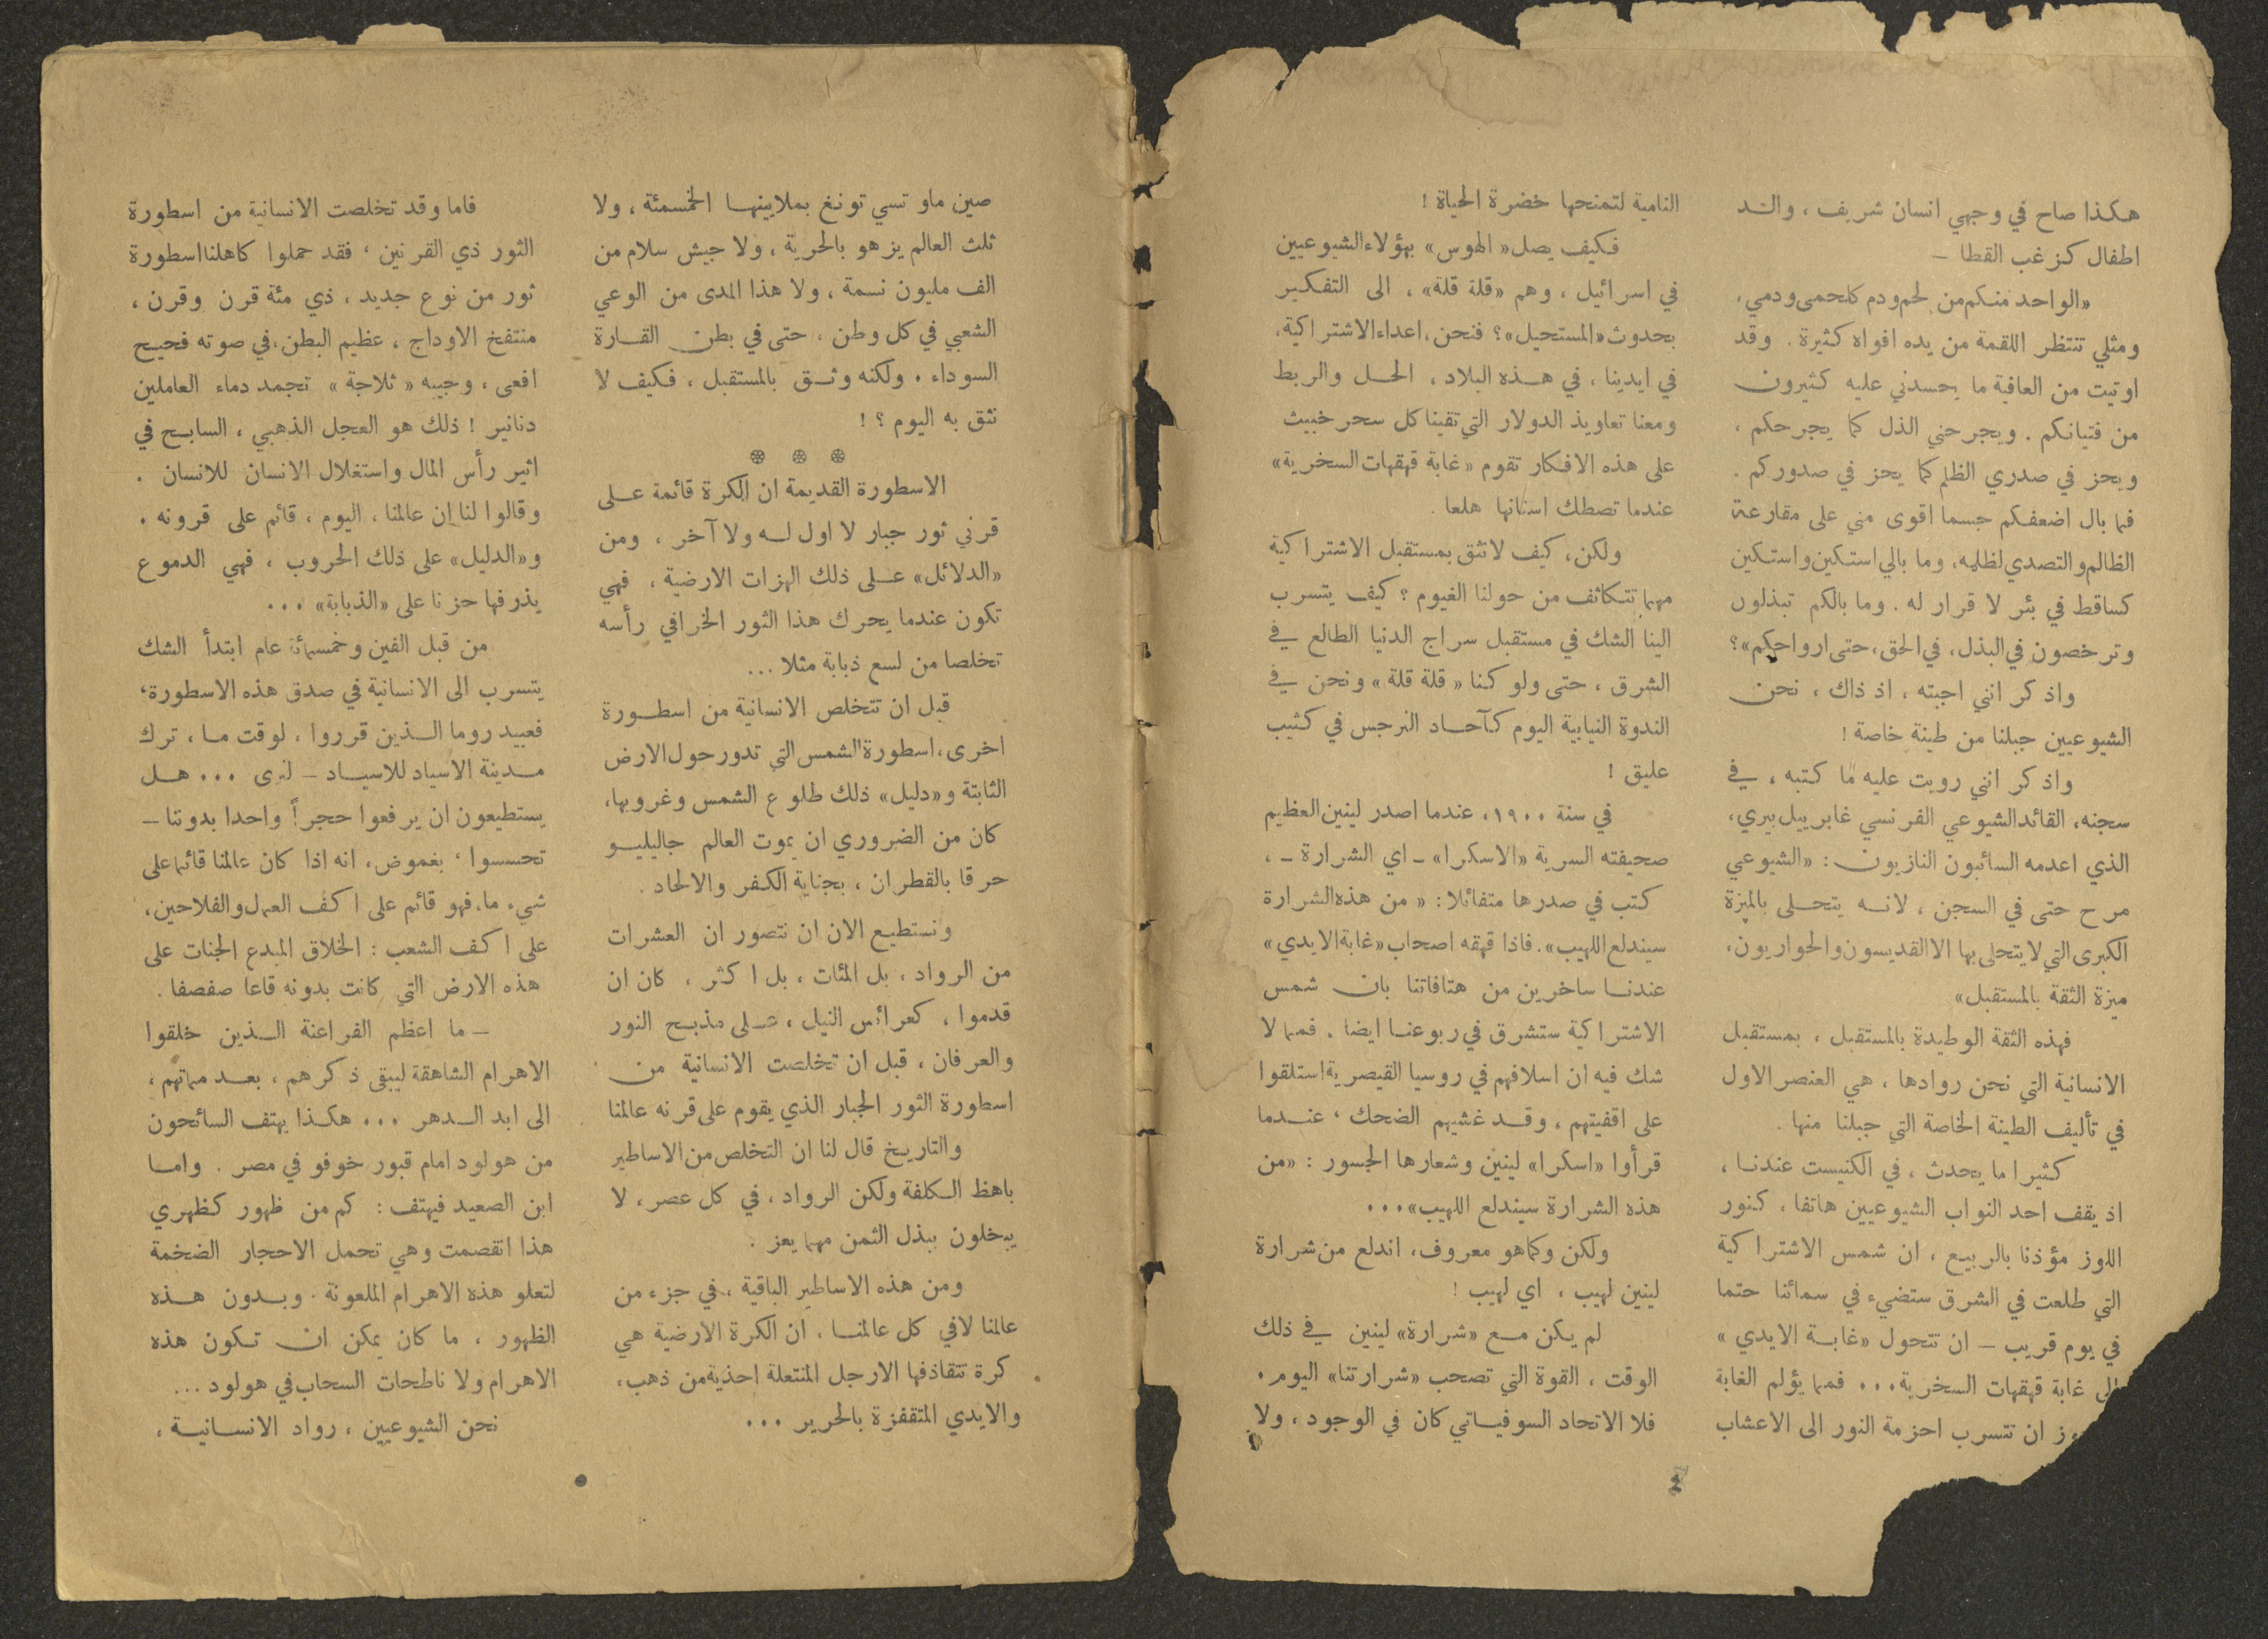 هكذا صاح في وجهي انسان شريف ، والد
اطفال كزغب القطا –
«الواحد منكم من لحم ودم كلحمي ودمي،
ومثلي تنتظر اللقمة من يده افواه كثيرة . وقد
اوتيت من العافية ما يحسدني عليه كثيرون
من فتيانكم . ويجرحني الذل كما يجرحكم ،
ويحز في صدري الظلم كما يحز في صدوركم .
فما بال اضعفكم جسما اقوى مني على مقارعة
الظالم والتصدي لظلمه، وما بالي استكين واستكين
كساقط في بئر لا قرار له . وما بالكم تبذلون
وترخصون في البذل، في الحق، حتى ارواحكم»؟
واذكر انني اجبته ، اذ ذاك ، نحن
الشيوعيين جبلنا من طينة خاصة !
واذكر انني رويت عليه ما كتبه ، في
سجنه، القائد الشيوعي الفرنسي غابرييل بيري،
الذي اعدمه السائبون النازيون : «الشيوعي
مرح حتى في السجن ، لانه يتحلى بالميزة
الكبرى التي لا يتحلى بها الا القديسون والحواريون،
ميزة الثقة بالمستقبل»
فهذه الثقة الوطيدة بالمستقبل ، بمستقبل
الانسانية التي نحن روادها ، هي العنصر الاول
في تأليف الطينة الخاصة التي جبلنا منها .
كثيرا ما يحدث ، في الكنيست عندنا ،
اذ يقف احد النواب الشيوعيين هاتفا ، كنور
اللوز مؤذنا بالربيع ، ان شمس الاشتراكية
التي طلعت في الشرق ستضيء في سمائنا حتما
في يوم قريب – ان تتحول «غابة الايدي»
الى غابة قهقهات السخرية... فمما يؤلم الغابة
ان تتسرب احزمة النور الى الاعشاب
النامية لتمنحها خضرة الحياة !
فكيف يصل «الهوس» بهؤلاء الشيوعيين
في اسرائيل ، وهم «قلة قلة» ، الى التفكير
بحدوث «المستحيل»؟ فنحن، اعداء الاشتراكية،
في ايدينا ، في هذه البلاد ، الحل والربط
ومعنا تعاويذ الدولار التي تقينا كل سحر خبيث
على هذه الافكار تقوم «غابة قهقهات السخرية»
عندما تصطك اسنانها هلعا .
ولكن، كيف لا نثق بمستقبل الاشتراكية
مهما تتكاثف من حولنا الغيوم ؟ كيف يتسرب
الينا الشك في مستقبل سراج الدنيا الطالع في
الشرق ، حتى ولو كنا « قلة قلة » ونحن في
الندوة النيابية اليوم كآحاد النرجس في كثيب
عليق !
في سنة ١٩٠٠، عندما اصدر لينين العظيم
صحيفته السرية «الاسكرا» – اي الشرارة – ،
كتب في صدرها متفائلا : « من هذه الشرارة
سيندلع اللهيب». فاذا قهقه اصحاب «غابة الايدي»
عندنا ساخرين من هتافاتنا بان شمس
الاشتراكية ستشرق في ربوعنا ايضا . فمما لا
شك فيه ان اسلافهم في روسيا القيصرية استلقوا
على اقفيتهم ، وقد غشيهم الضحك ، عندما
قرأوا «اسكرا» لينين وشعارها الجسور : «من
هذه الشرارة سيندلع اللهيب»...
ولكن وكما هو معروف، اندلع من شرارة
لينين لهيب ، اي لهيب !
لم يكن مع «شرارة» لينين في ذلك
الوقت ، القوة التي تصحب «شرارتنا» اليوم .
فلا الاتحاد السوفياتي كان في الوجود ، ولا
صين ماو تسي تونغ بملايينها الخمسمئة ، ولا
ثلث العالم يزهو بالحرية ، ولا جيش سلام من
الف مليون نسمة ، ولا هذا المدى من الوعي
الشعبي في كل وطن ، حتى في بطن القارة
السوداء . ولكنه وثق بالمستقبل ، فكيف لا
نثق به اليوم ؟ !
الاسطورة القديمة ان الكرة قائمة على
قرني ثور جبار لا اول له ولا آخر ، ومن
«الدلائل» على ذلك الهزات الارضية ، فهي
تكون عندما يحرك هذا الثور الخرافي رأسه
تخلصا من لسع ذبابة مثلا ...
قبل ان تتخلص الانسانية من اسطورة
اخرى، اسطورة الشمس التي تدور حول الارض
الثابتة و«دليل» ذلك طلوع الشمس وغروبها،
كان من الضروري ان يموت العالم جاليليو
حرقا بالقطران ، بجناية الكفر والالحاد .
ونستطيع الان ان نتصور ان العشرات
من الرواد ، بل المئات ، بل اكثر ، كان ان
قدموا ، كعرائس النيل ، على مذبح النور
والعرفان ، قبل ان تخلصت الانسانية من
اسطورة الثور الجبار الذي يقوم على قرنه عالمنا
والتاريخ قال لنا ان التخلص من الاساطير
باهظ الكلفة ولكن الرواد ، في كل عصر ، لا
يبخلون ببذل الثمن مهما يعز .
ومن هذه الاساطير الباقية ، في جزء من
عالمنا لا في كل عالمنا ، ان الكرة الارضية هي
كرة تتقاذفها الارجل المنتعلة احذية من ذهب،
والايدي المتقفزة بالحرير ...
فاما وقد تخلصت الانسانية من اسطورة
الثور ذي القرنين ، فقد حملوا كاهلنا اسطورة
ثور من نوع جديد ، ذي مئة قرن وقرن ،
منتفخ الاوداج ، عظيم البطن، في صوته فحيح
افعى ، وجيبه « ثلاجة » تجمد دماء العاملين
دنانير ! ذلك هو العجل الذهبي ، السابح في
اثير رأس المال واستغلال الانسان للانسان .
وقالوا لنا ان عالمنا ، اليوم ، قائم على قرونه .
و«الدليل» على ذلك الحروب ، فهي الدموع
يذرفها حزنا على «الذبابة» ...
من قبل الفين وخمسمائة عام ابتدأ الشك
يتسرب الى الانسانية في صدق هذه الاسطورة،
فعبيد روما الذين قرروا ، لوقت ما ، ترك
مدينة الاسياد للاسياد – لنرى ... هل
يستطيعون ان يرفعوا حجراً واحدا بدوننا –
تحسسوا ، بغموض، انه اذا كان عالمنا قائما على
شيء ما، فهو قائم على اكف العمال والفلاحين،
على اكف الشعب : الخلاق المبدع الجنات على
هذه الارض التي كانت بدونه قاعا صفصفا .
– ما اعظم الفراعنة الذين خلقوا
الاهرام الشاهقة ليبقى ذكرهم ، بعد مماتهم ،
الى ابد الدهر ... هكذا يهتف السائحون
من هولود امام قبور خوفو في مصر . واما
ابن الصعيد فيهتف : كم من ظهور كظهري
هذا انقصمت وهي تحمل الاحجار الضخمة
لتعلو هذه الاهرام الملعونة . وبدون هذه
الظهور ، ما كان يمكن ان تكون هذه
الاهرام ولا ناطحات السحاب في هولود ...
نحن الشيوعيين ، رواد الانسانية ،